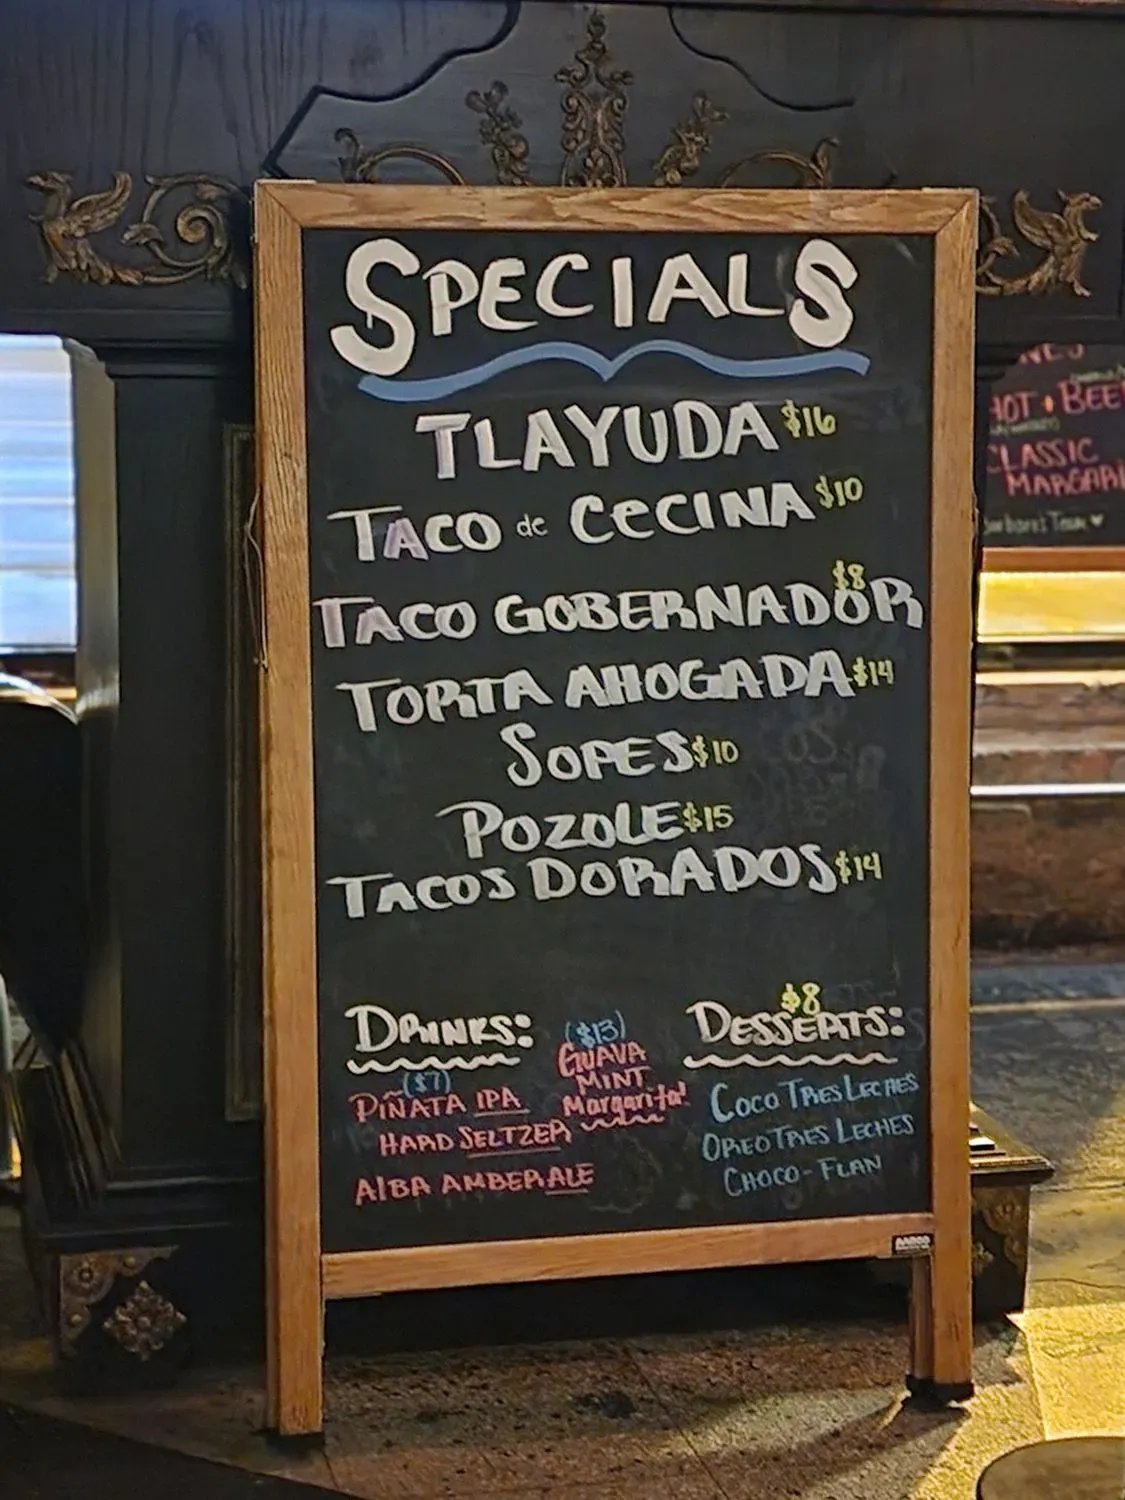 SPECIALS
TLAYUDA $16
TACO de CECINA $10
TACO GOBERNADOR $8
TORTA AHOGADA $14
SOPES $10
POZOLE $15
TACOS DORADOS $14
DRINKS:
($7)
PIÑATA IPA
HARD SELTZER
ALBA AMBER ALE
($13)
GUAVA
MINT
Margarita!
$8
DESSERTS:
COCO TRES LECHES
OREO TRES LECHES
CHOCO-FLAN
HOT
CLASSIC